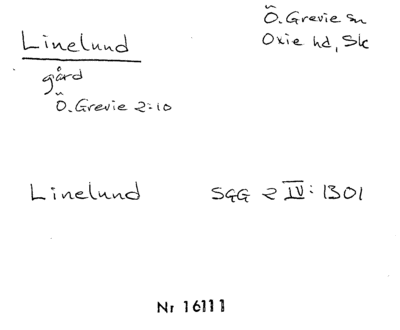 Linelund
Ö. Grevie sn
Oxie hd, Sk
gård
Ö. Grevie 2:10
Linelund SGG 2 IV: 1301
Nr 16111